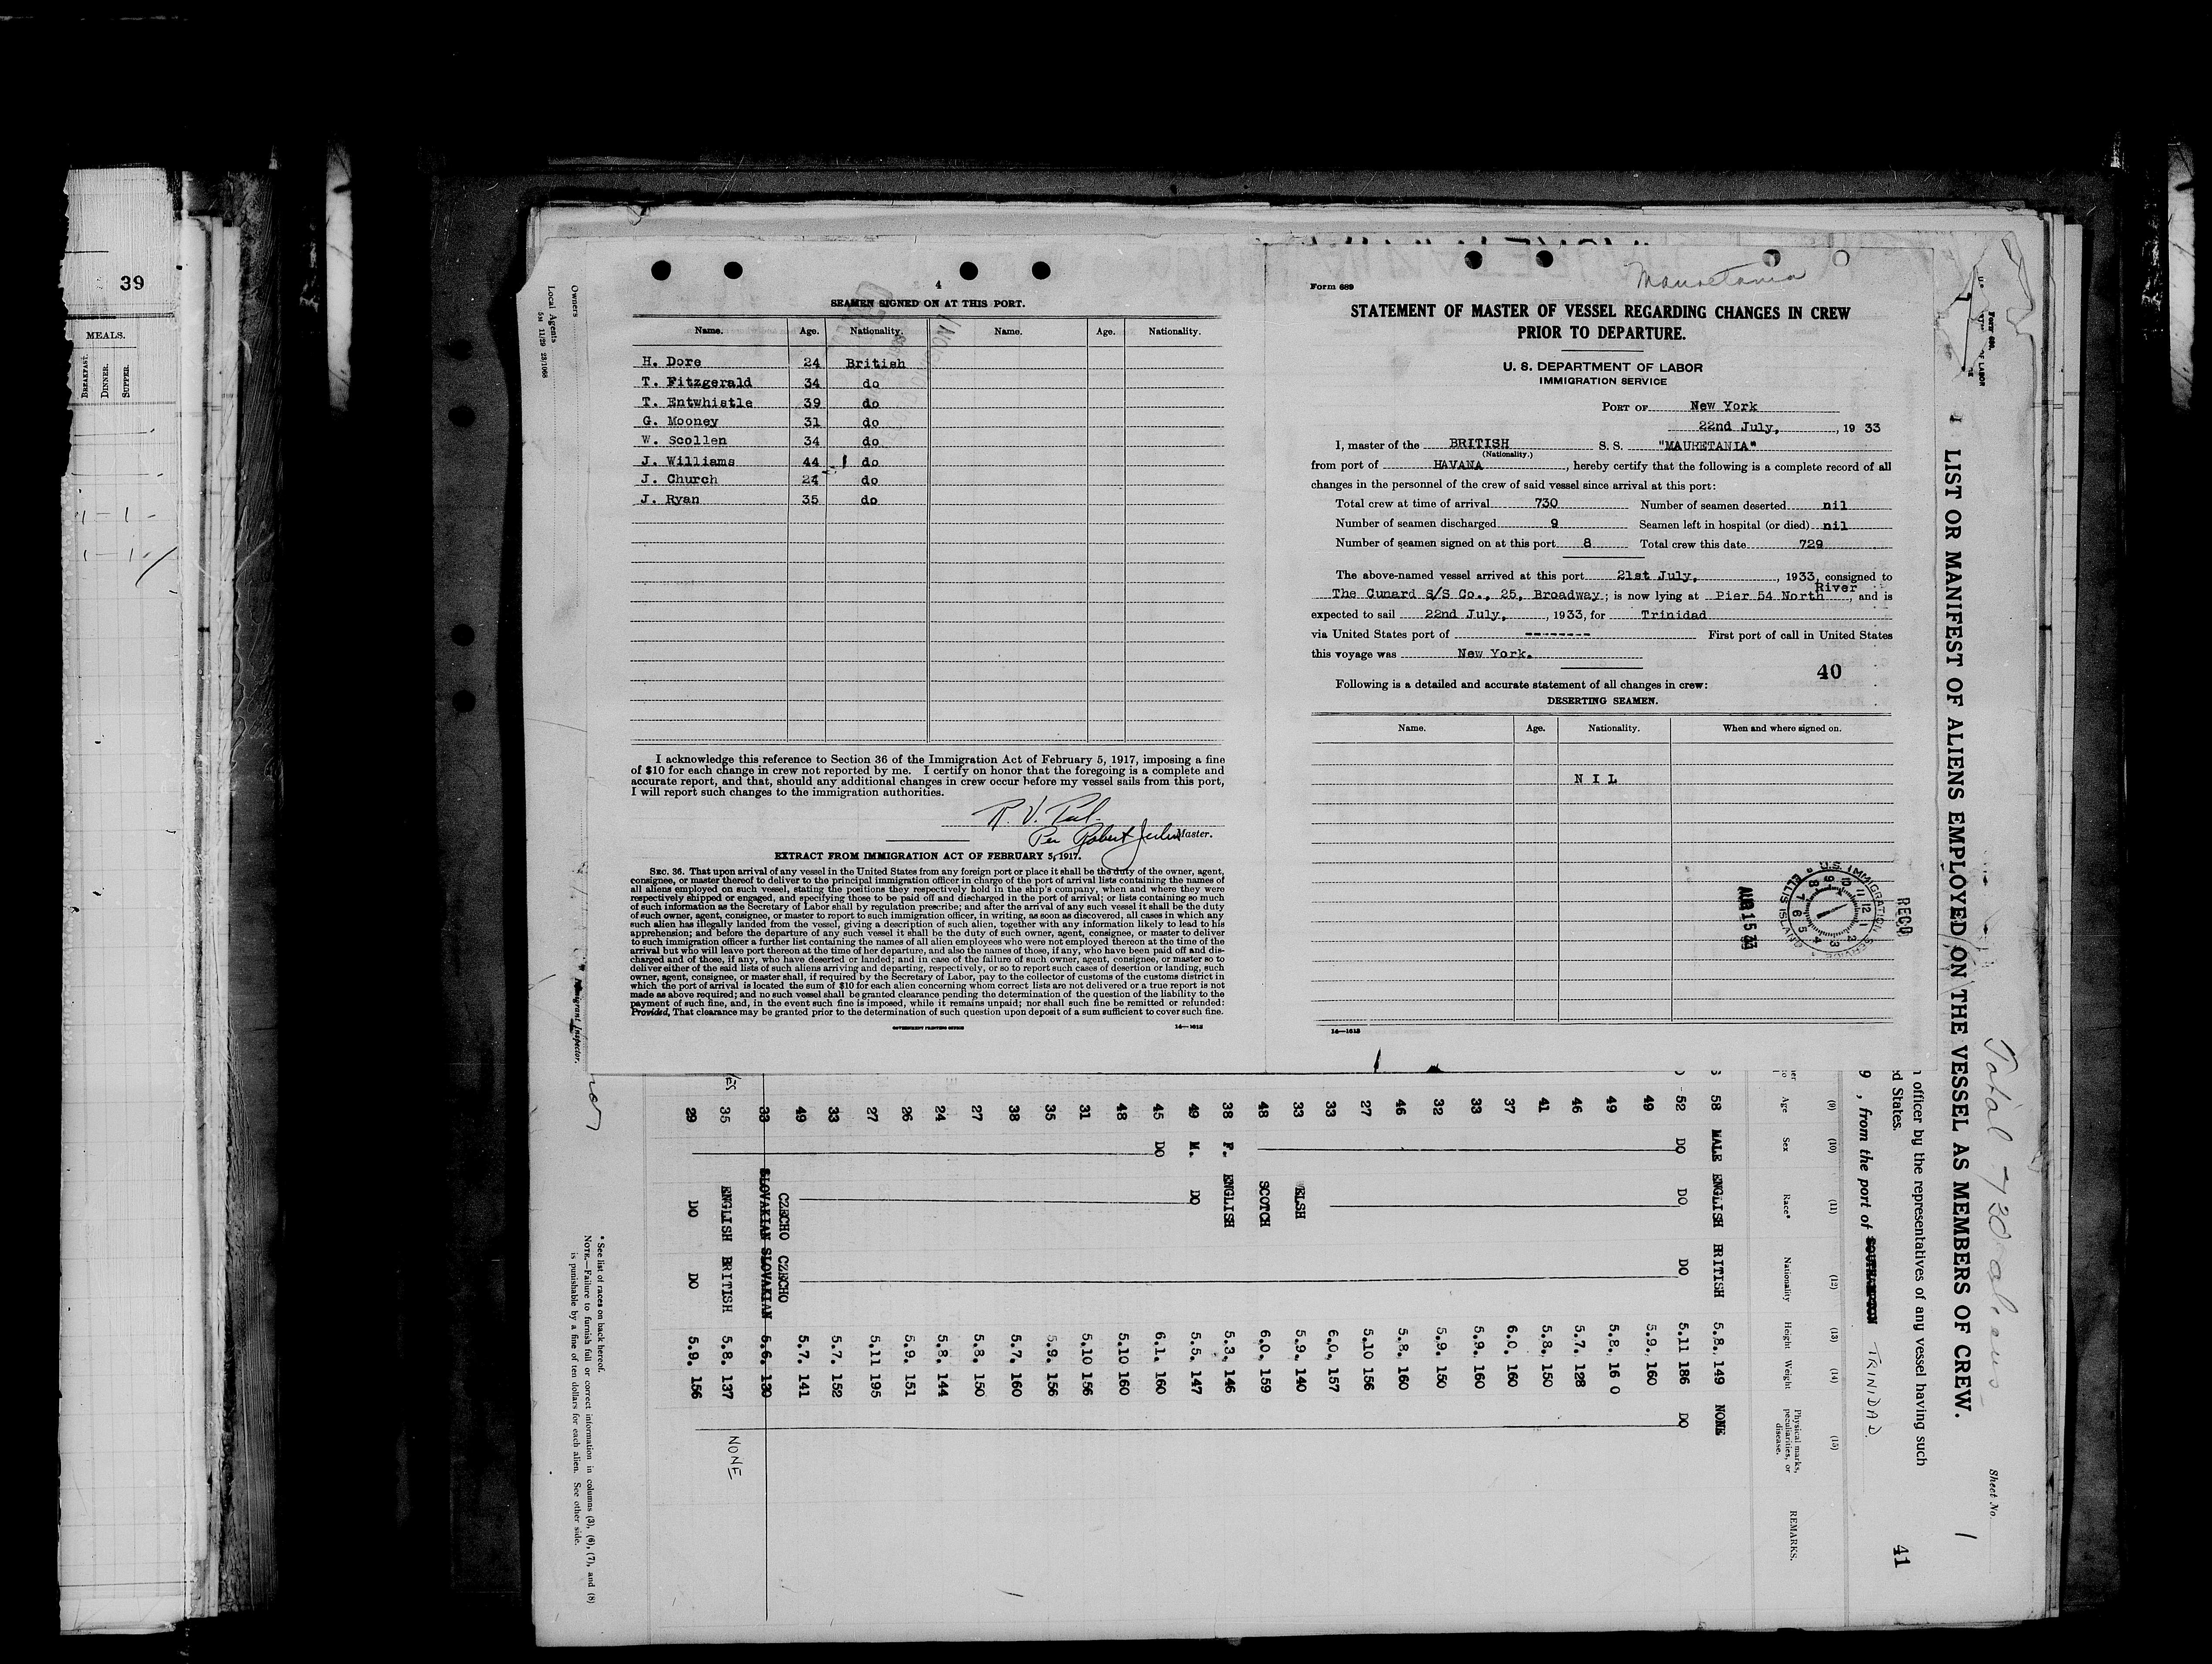 39
MEALS.
BREAKFAST.
DINNER.
SUPPER.
Owners
Local Agents
5M 11/29 23/1068
4
SEAMEN SIGNED ON AT THIS PORT.
Name. Age. Nationality. Name. Age. Nationality.
H. Dore 24 British
T. Fitzgerald 34 do
T. Entwhistle 39 do
G. Mooney 31 do
W. Scollen 34 do
J. Williams 44 do
J. Church 24 do
J. Ryan 35 do
I acknowledge this reference to Section 36 of the Immigration Act of February 5, 1917, imposing a fine
of $10 for each change in crew not reported by me. I certify on honor that the foregoing is a complete and
accurate report, and that, should any additional changes in crew occur before my vessel sails from this port,
I will report such changes to the immigration authorities.
R. V. Peel.
Per Robert Master.
EXTRACT FROM IMMIGRATION ACT OF FEBRUARY 5, 1917.
SEC. 36. That upon arrival of any vessel in the United States from any foreign port or place it shall be the duty of the owner, agent,
consignee, or master thereof to deliver to the principal immigration officer in charge of the port of arrival lists containing the names of
all aliens employed on such vessel, stating the positions they respectively hold in the ship's company, when and where they were
respectively shipped or engaged, and specifying those to be paid off and discharged in the port of arrival; or lists containing so much
of such information as the Secretary of Labor shall by regulation prescribe; and after the arrival of any such vessel it shall be the duty
of such owner, agent, consignee, or master to report to such immigration officer, in writing, as soon as discovered, all cases in which any
such alien has illegally landed from the vessel, giving a description of such alien, together with any information likely to lead to his
apprehension; and before the departure of any such vessel it shall be the duty of such owner, agent, consignee, or master to deliver
to such immigration officer a further list containing the names of all alien employees who were not employed thereon at the time of the
arrival but who will leave port thereon at the time of her departure, and also the names of those, if any, who have been paid off and dis-
charged and of those, if any, who have deserted or landed; and in case of the failure of such owner, agent, consignee, or master so to
deliver either of the said lists of such aliens arriving and departing, respectively, or so to report such cases of desertion or landing, such
owner, agent, consignee, or master shall, if required by the Secretary of Labor, pay to the collector of customs of the customs district in
which the port of arrival is located the sum of $10 for each alien concerning whom correct lists are not delivered or a true report is not
made as above required; and no such vessel shall be granted clearance pending the determination of the question of the liability to the
payment of such fine, and, in the event such fine is imposed, while it remains unpaid; nor shall such fine be remitted or refunded:
Provided, That clearance may be granted prior to the determination of such question upon deposit of a sum sufficient to cover such fine.
GOVERNMENT PRINTING OFFICE 14—1613
Form 689
Mauretania
STATEMENT OF MASTER OF VESSEL REGARDING CHANGES IN CREW
PRIOR TO DEPARTURE.
U. S. DEPARTMENT OF LABOR
IMMIGRATION SERVICE
PORT OF New York
22nd July, , 19 33
I, master of the BRITISH S. S. "MAURETANIA"
(Nationality.)
from port of HAVANA , hereby certify that the following is a complete record of all
changes in the personnel of the crew of said vessel since arrival at this port:
Total crew at time of arrival 730 Number of seamen deserted nil
Number of seamen discharged 9 Seamen left in hospital (or died) nil
Number of seamen signed on at this port 8 Total crew this date 729
The above-named vessel arrived at this port 21st July, , 1933, consigned to
The Cunard S/S Co., 25, Broadway ; is now lying at Pier 54 North River , and is
expected to sail 22nd July, , 1933, for Trinidad
via United States port of -------- First port of call in United States
this voyage was New York.
40
Following is a detailed and accurate statement of all changes in crew:
DESERTING SEAMEN.
Name. Age. Nationality. When and where signed on.
N I L
REC'D
U.S. IMMIGRATION SERVICE ELLIS ISLAND
AUG 15 33
14—1613
Form 689.
OF LABOR
Total 730 aliens
Sheet No. 1
LIST OR MANIFEST OF ALIENS EMPLOYED ON THE VESSEL AS MEMBERS OF CREW.
officer by the representatives of any vessel having such
d States.
41
9 , from the port of SOUTHAMPTON TRINIDAD.
(9) (10) (11) (12) (13) (14) (15)
Age Sex Race* Nationality Height Weight Physical marks, peculiarities, or disease. REMARKS.
58 MALE ENGLISH BRITISH 5.8. 149 NONE
52 DO DO DO 5.11 186 DO
49 5.9. 160
49 5.8. 16 0
46 5.7. 128
41 5.8. 150
37 6.0. 160
33 5.9. 160
32 5.9. 150
46 5.8. 160
27 5.10 156
33 6.0. 157
33 ELSH 5.9. 140
48 SCOTCH 6.0. 159
38 F. ENGLISH 5.3. 146
49 M. DO 5.5. 147
45 DO 6.1. 160
48 5.10 160
31 5.10 156
35 5.9. 156
38 5.7. 160
27 5.8. 150
24 5.8. 144
26 5.9. 151
27 5.11 195
33 5.7. 152
49 5.7. 141
CZECHO CZECHO
33 SLOVAKIAN SLOVAKIAN 5.6. 130
YES 35 ENGLISH BRITISH 5.8. 137 NONE
29 DO DO 5.9. 156
* See list of races on back hereof.
NOTE.—Failure to furnish full or correct information in columns (3), (6), (7), and (8)
is punishable by a fine of ten dollars for each alien. See other side.
Immigrant Inspector.